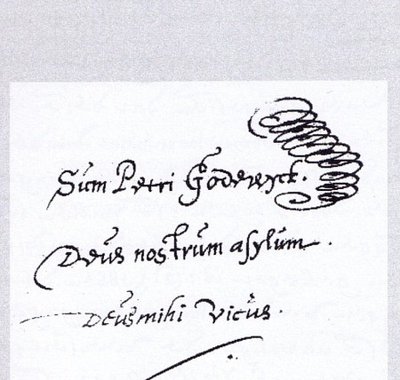 Sum Petri Godewyck.
Deus nostrum asylum.
Deus mihi vicus.